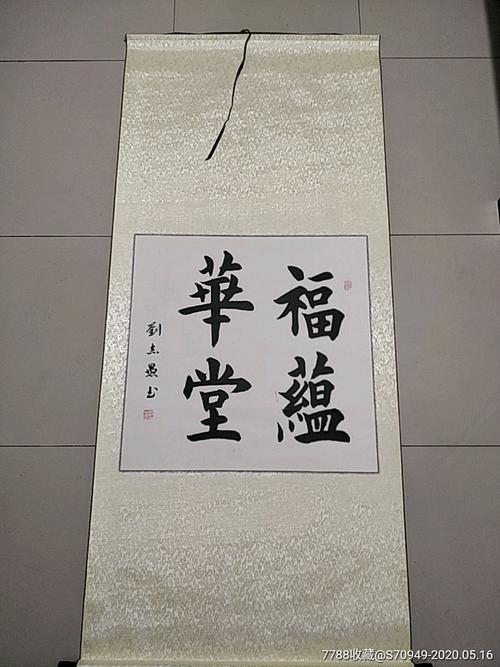 福蘊
華堂
劉志
7788收藏@S70949-2020.05.16